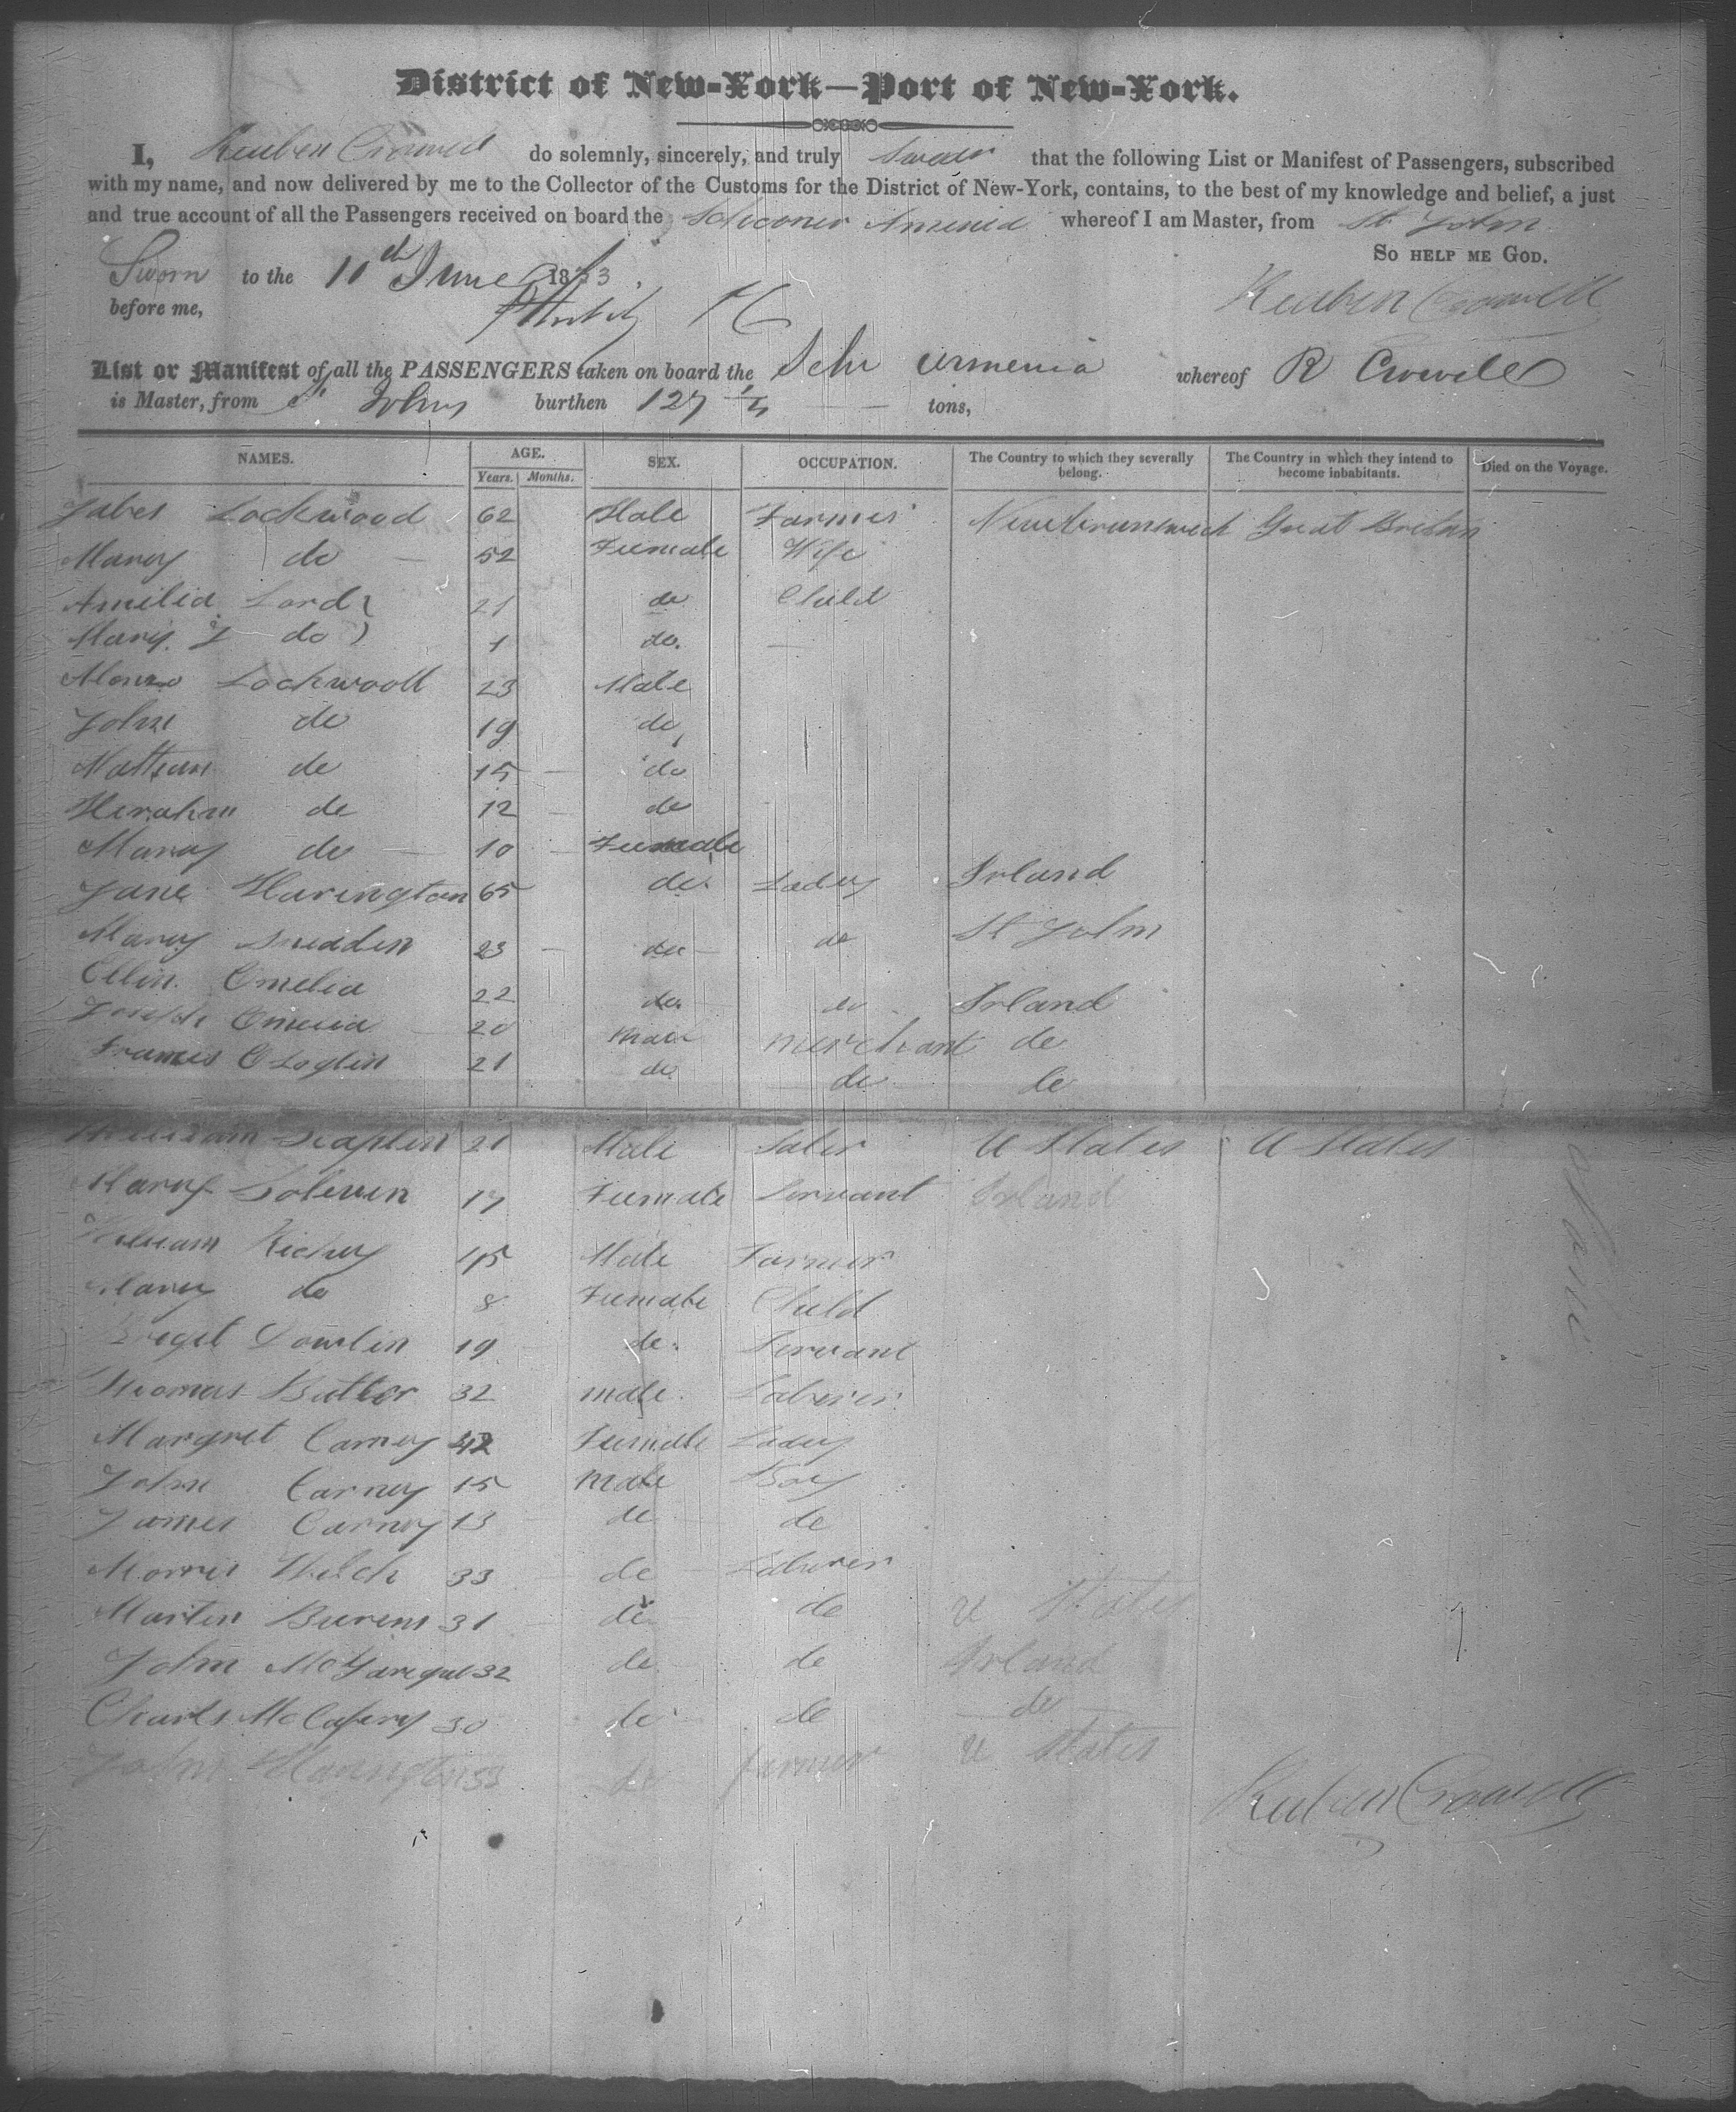 District of New-York—Port of New-York.
I, Reuben Crowell do solemnly, sincerely, and truly Swear that the following List or Manifest of Passengers, subscribed
with my name, and now delivered by me to the Collector of the Customs for the District of New-York, contains, to the best of my knowledge and belief, a just
and true account of all the Passengers received on board the Schooner Amenia whereof I am Master, from St John
So help me God.
Sworn to the 11th June 1833
before me, Reuben Crowell
List or Manifest of all the PASSENGERS taken on board the Schr Armenia whereof R Crowell
is Master, from St Johns burthen 127 tons,
NAMES. AGE. SEX. OCCUPATION. The Country to which they severally belong. The Country in which they intend to become inhabitants. Died on the Voyage.
Years. Months.
Jabes Lockwood 62 Male Farmer Newbrunswick Great Britan
Marey do 52 Fumale Wife
Amilia Lord 21 do Child
Mary J do 1 do.
Alonzo Lockwood 23 Male
John do 19 do
Nathan do 15 do
Hirahm do 12 do
Marey do 10 Fumale
Jane Harington 65 do. Ladey Irland
Marey Snedden 23 do do St John
Ellin Omelia 22 do. do Irland
Joseph Omelia 20 male merchant do
Frances OLoglin 21 do do do
William Slaplin 21 Male Saler U States U States
Marey Soleven 17 Fumale Servant Irland
William Richey 45 Male Farmer
Marey do 8 Fumale Child
Breget Dowlin 19 do. Servant
Thomas Butler 32 male Laberer
Margret Carney 42 Fumale Ladey
John Carney 15 male Boy
James Carney 13 do do
Morris Welch 33 do Laberer
Marten Burens 31 do do U States
John 32 do do Irland
Charls McCafery 30 do do do
John 33 do farmer U States
None
Reuben Crowell